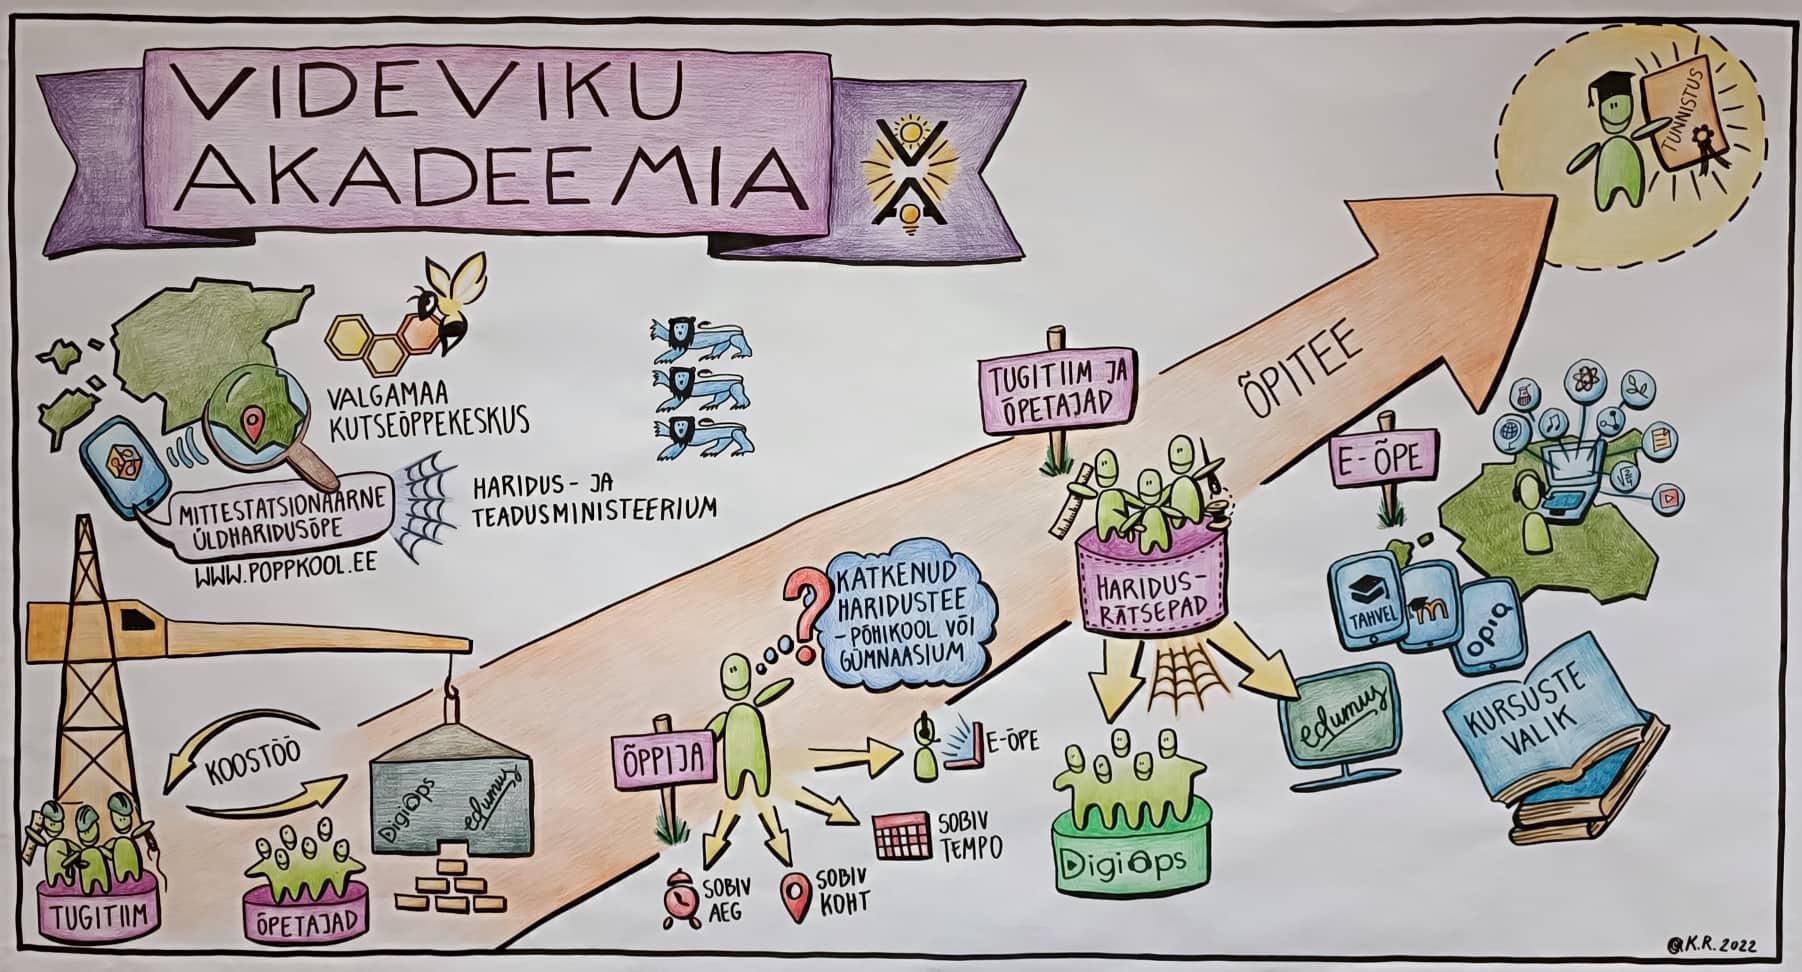 VIDEVIKU
AKADEEMIA
TUNNISTUS
VALGAMAA
KUTSEÕPPEKESKUS
MITTESTATSIONAARNE
ÜLDHARIDUSÕPE
WWW.POPPKOOL.EE
HARIDUS- JA
TEADUSMINISTEERIUM
TUGITIIM JA
ÕPETAJAD
ÕPITEE
E-ÕPE
HARIDUS-
RÄTSEPAD
TAHVEL
m
opiq
KATKENUD
HARIDUSTEE
-PÕHIKOOL VÕI
GÜMNAASIUM
KOOSTÖÖ
DigiÕps
edumus
TUGITIIM
ÕPETAJAD
ÕPPIJA
E-ÕPE
SOBIV
TEMPO
SOBIV
AEG
SOBIV
KOHT
DigiÕps
edumus
KURSUSTE
VALIK
©K.R. 2022